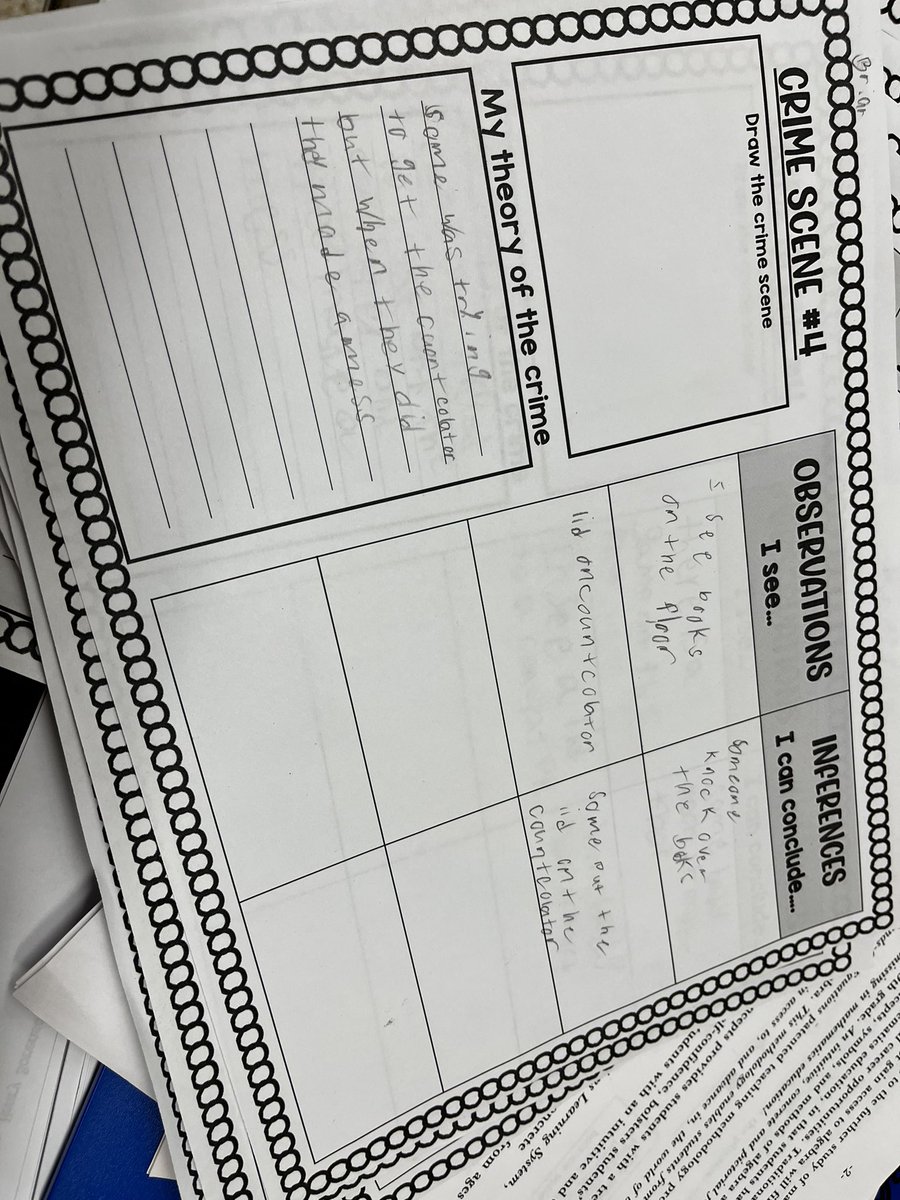 Brian
CRIME SCENE #4
Draw the crime scene
My theory of the crime
some was trying
to get the countcolator
but when they did
they made a mess
OBSERVATIONS
I see...
I see books
on the floor
lid oncountcolator
INFERENCES
I can conclude....
someone
knock over
the books
some out the
lid on the
countcolator
-2-